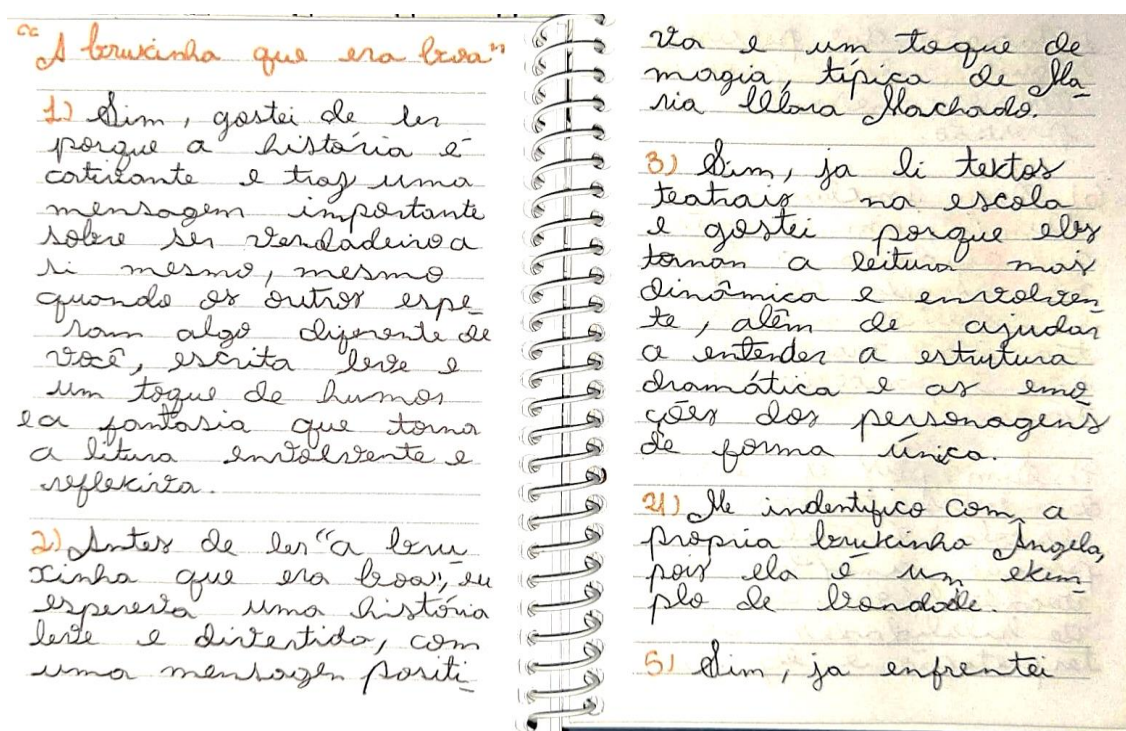 "A bruxinha que era boa"
1) Sim, gostei de ler
porque a história é
cativante e traz uma
mensagem importante
sobre ser verdadeiro a
si mesmo, mesmo
quando os outros espe-
ram algo diferente de
você, escrita leve e
um toque de humor
e a fantasia que torna
a litura envolvente e
reflexiva.
2) Antes de ler "a bru
xinha que era boa", eu
esperava uma história
leve e divertida, com
uma mensagem positi-
va e um toque de
magia, típica de Ma-
ria Clara Machado.
3) Sim, ja li textos
teatrais na escola
e gostei porque eles
tornan a leitura mais
dinâmica e envolven-
te, além de ajudar
a entender a estrutura
dramática e as emo-
ções dos personagens
de forma única.
4) Me indentifico com a
própria bruxinha Ângela,
pois ela é um exem-
plo de bondade.
5) Sim, ja enfrentei